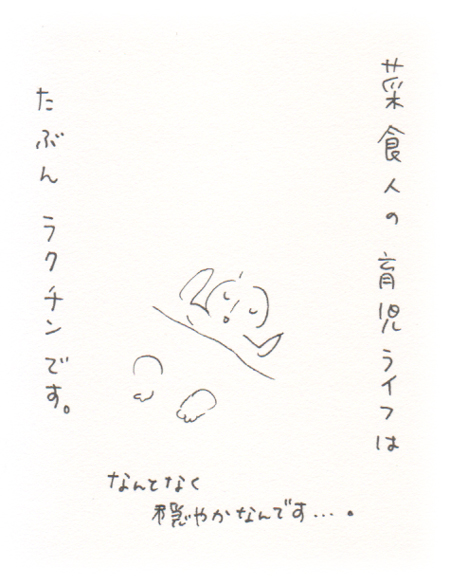 菜食人の育児ライフは
たぶん ラクチンです。
なんとなく
穏やかなんです…。